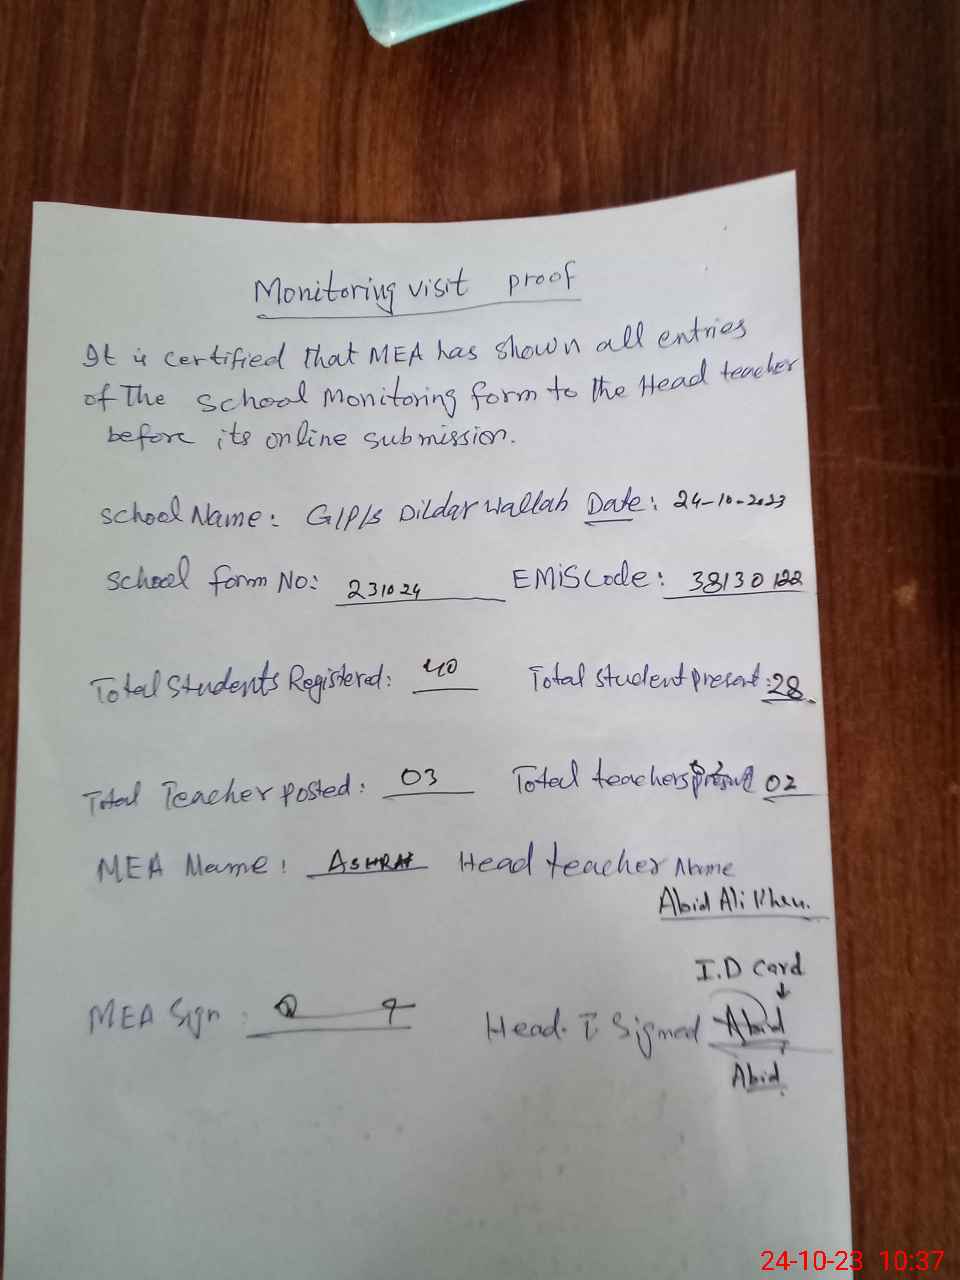 Monitoring visit proof
It is certified that MEA has shown all entries
of The School Monitoring form to the Head teacher
before its online submission.
School Name: G/P/S Dildar Wallah Date: 24-10-2023
School form No: 231024 EMIS Code: 38130122
Total Students Registered: 40 Total student present: 28
Total Teacher posted: 03 Total teachers present 02
MEA Name: ASHRAF Head teacher Name
Abid Ali Khan.
I.D Card
MEA Sign: Head. T Signed Abid
Abid
24-10-23 10:37